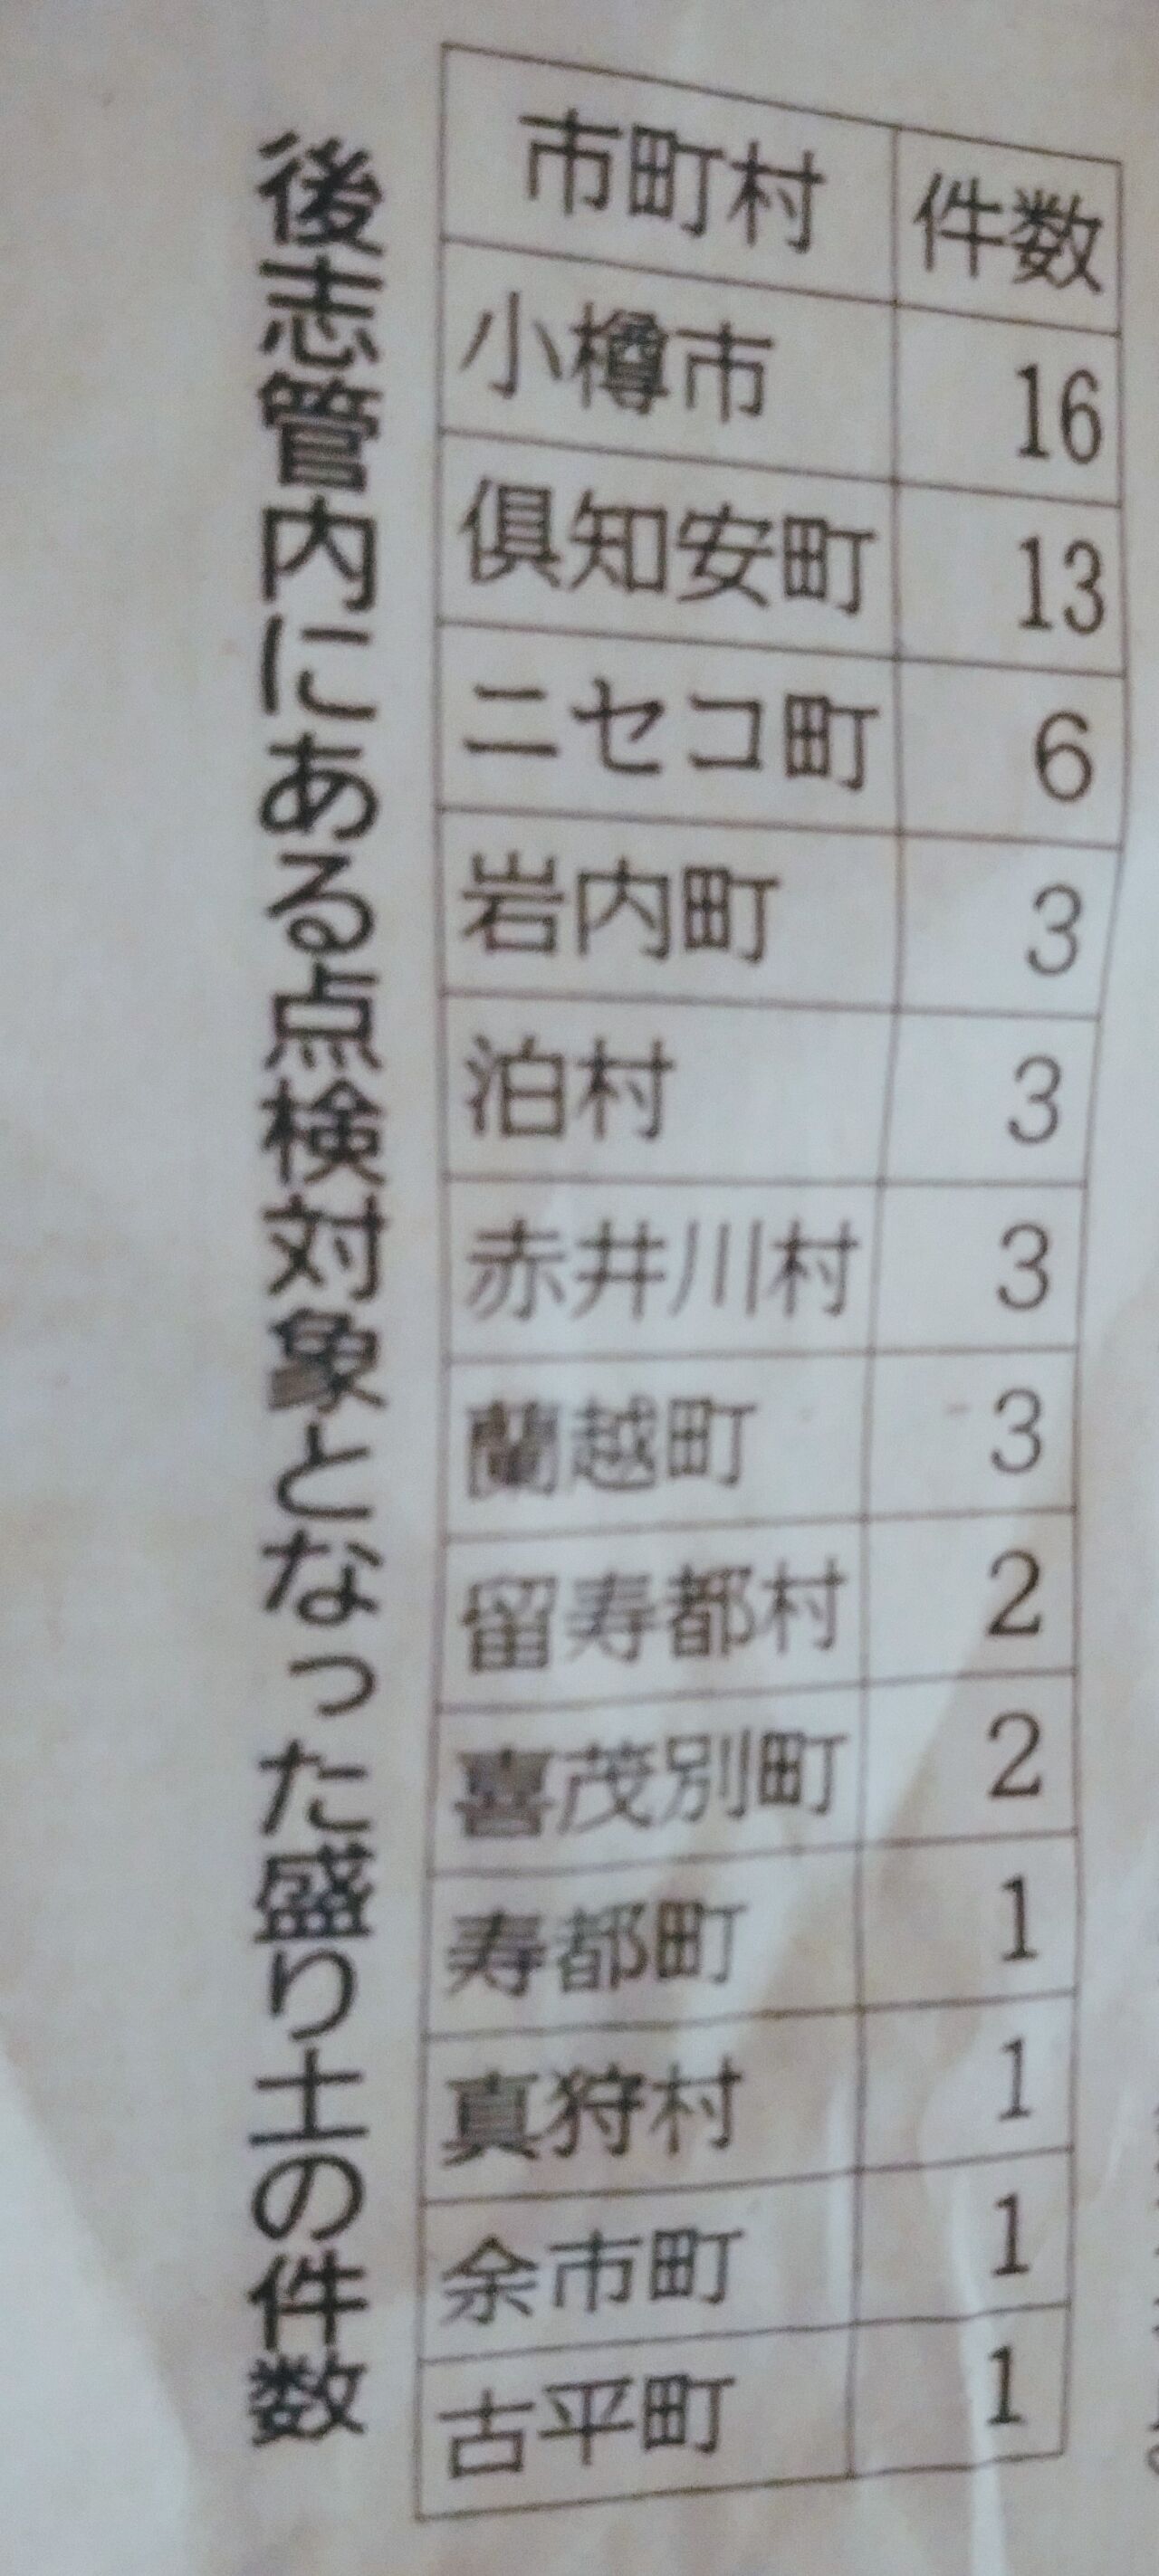 後志管内にある点検対象となった盛り土の件数
市町村 件数
小樽市 16
倶知安町 13
ニセコ町 6
岩内町 3
泊村 3
赤井川村 3
蘭越町 3
留寿都村 2
喜茂別町 2
寿都町 1
真狩村 1
余市町 1
古平町 1